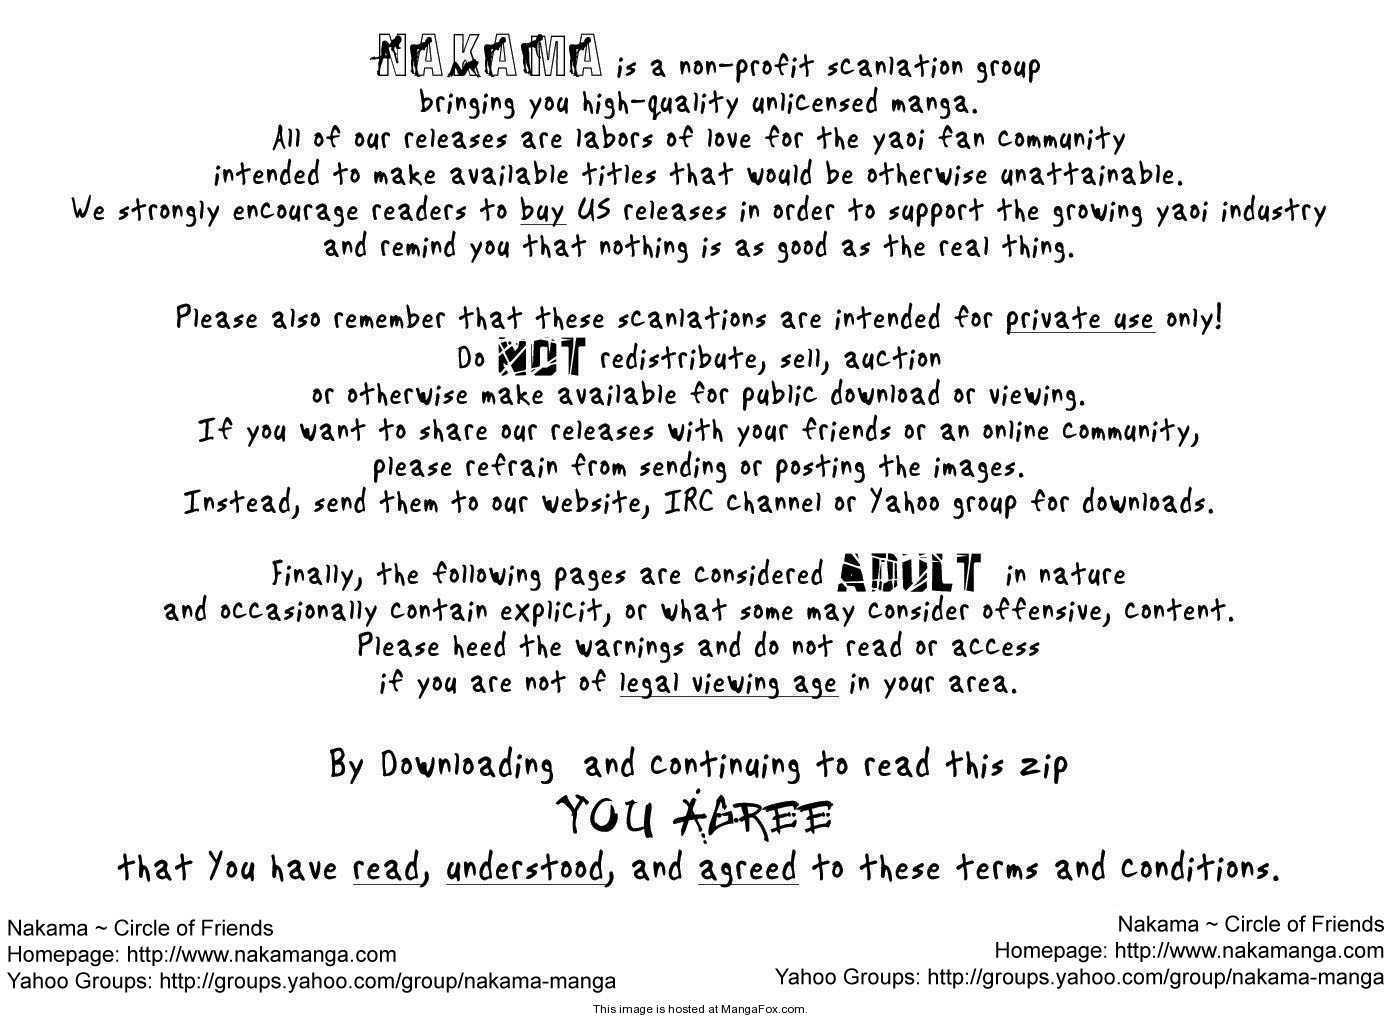 NAKAMA is a non-profit scanlation group
bringing you high-quality unlicensed manga.
All of our releases are labors of love for the yaoi fan community
intended to make available titles that would be otherwise unattainable.
We strongly encourage readers to buy US releases in order to support the growing yaoi industry
and remind you that nothing is as good as the real thing.
Please also remember that these scanlations are intended for private use only!
Do NOT redistribute, sell, auction
or otherwise make available for public download or viewing.
If you want to share our releases with your friends or an online community,
please refrain from sending or posting the images.
Instead, send them to our website, IRC channel or Yahoo group for downloads.
Finally, the following pages are considered ADULT in nature
and occasionally contain explicit, or what some may consider offensive, content.
Please heed the warnings and do not read or access
if you are not of legal viewing age in your area.
By Downloading and continuing to read this zip
YOU AGREE
that You have read, understood, and agreed to these terms and conditions.
Nakama ~ Circle of Friends
Homepage: http://www.nakamanga.com
Yahoo Groups: http://groups.yahoo.com/group/nakama-manga
Nakama ~ Circle of Friends
Homepage: http://www.nakamanga.com
Yahoo Groups: http://groups.yahoo.com/group/nakama-manga
This image is hosted at MangaFox.com.